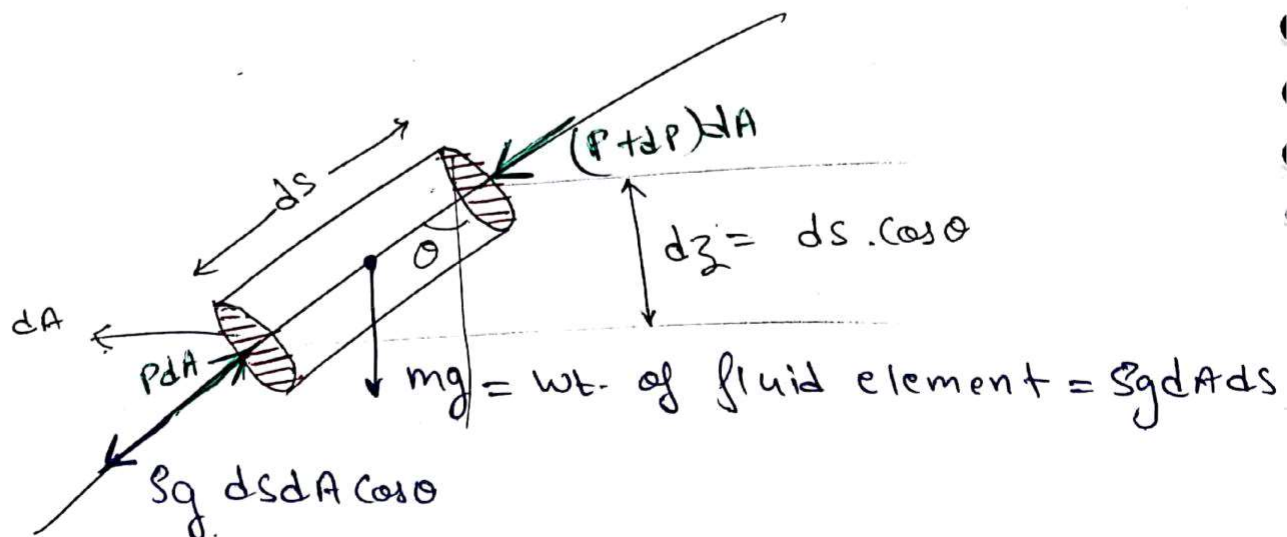 (P+dP)dA
ds
θ
dz = ds . Cosθ
dA
PdA
mg = wt. of fluid element = ρgdAds
ρg dsdA Cosθ